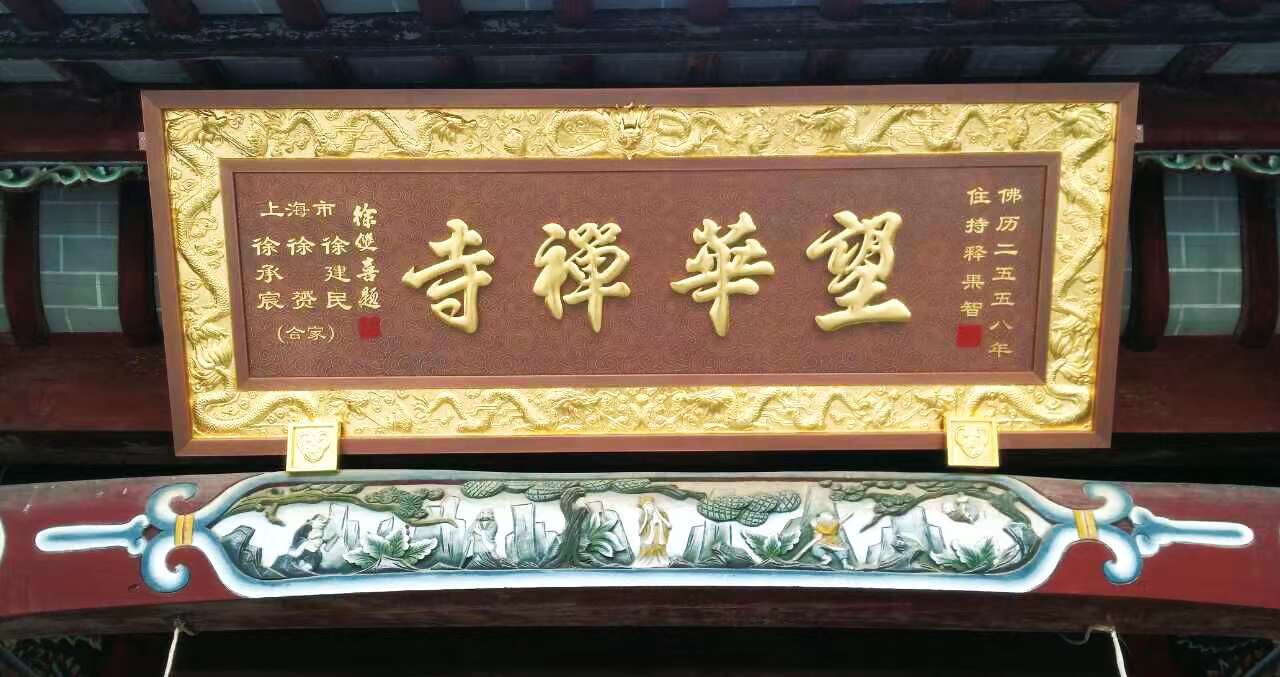 佛历二五五八年
住持释果智
望華禪寺
徐雙喜題
上海市
徐建民
徐赟
徐承宸
(合家)